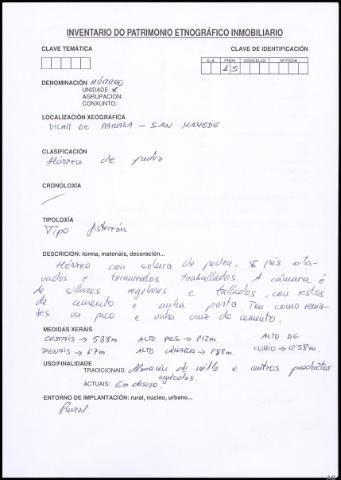 INVENTARIO DO PATRIMONIO ETNOGRÁFICO INMOBILIARIO
CLAVE TEMÁTICA
CLAVE DE IDENTIFICACIÓN
C.A. PROV. CONCELLO Nº FICHA
15
DENOMINACIÓN HÓRREO
UNIDADE: X
AGRUPACION:
CONXUNTO:
LOCALIZACIÓN XEOGRÁFICA
VILAR DE PARADA - SAN MAMEDE
CLASIFICACIÓN
Hórreo de pedra
CRONOLOXÍA
TIPOLOXÍA
Tipo Asterrán
DESCRIPCIÓN: forma, materiais, decoración...
Hórreo con soleira de pedra, 8 pés oita-
vados e tornarratos traballados. A cámara é
de sillares regulares e tallados, con restos
de cemento e unha porta. Ten como rema-
tes un pico e unha cruz de cemento.
MEDIDAS XERAIS
COSTAIS → 5'88m ALTO PÉS → 1'12m ALTO DE
PENAIS → 1'7m ALTO CÁMARA → 1'88m. → 0'58m.
USO/FINALIDADE
TRADICIONAIS: Almacén de millo e outros productos
agrícolas.
ACTUAIS: En desuso.
ENTORNO DE IMPLANTACIÓN: rural, núcleo, urbano...
Rural